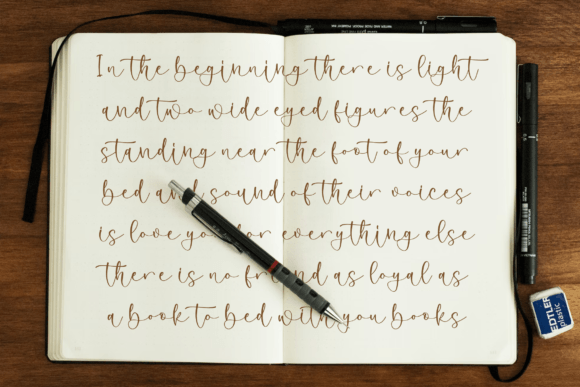 In the beginning there is light
and two wide eyed figures the
standing near the foot of your
bed and sound of their voices
is love you for everything else
there is no friend as loyal as
a book to bed with you books
EDTLER
plastic